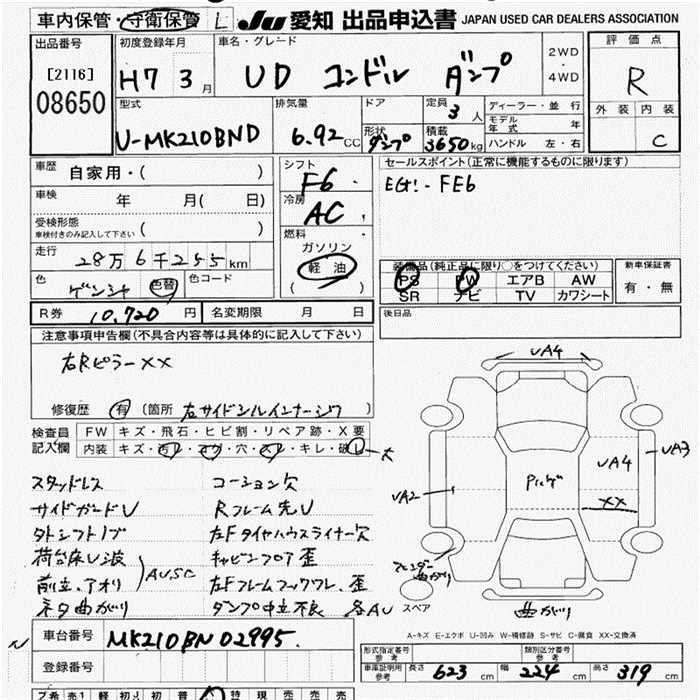 車内保管・守衛保管 L JU 愛知 出品申込書 JAPAN USED CAR DEALERS ASSOCIATION
出品番号 初度登録年月 車名・グレード 2WD・4WD 評価点
[2116] 08650 H7 3月 UD コンドル ダンプ R
型式 排気量 ドア 定員 3人 ディーラー・並行 外装 内装
モデル年式 年
U-MK210BND 6.92CC 形状 ダンプ 積載 3650kg ハンドル 左・右 C
車歴 自家用・( ) シフト F6 セールスポイント(正常に機能するものに限ります)
車検 年 月( 日) 冷房 AC EG!-FE6
受検形態 車検付きのみ記入して下さい ( ) 燃料 ガソリン
走行 28万6千255km 軽油
色 色替 色コード ( )
装備品(純正品に限り○をつけてください) 新車保証書
PS PW エアB AW 有・無
SR ナビ TV カワシート
R券 10,720円 名変期限 月 日 後日品
注意事項申告欄(不具合内容等は具体的に記入して下さい)
右RピラーXX
修復歴 有 (箇所 右サイドシルインナージワ)
検査員記入欄 FW キズ・飛石・ヒビ割・リペア跡・X要
内装 キズ・汚レ・コゲ・穴・スレ・キレ・破レ 大
スタッドレス コーション欠
サイドガードU Rフレーム先U
外シフトノブ 左Fタイヤハウスライナー欠
荷台床U波 キャビンフロア歪
前立、アオリ AU,SC 左Fフレームフックワレ、歪
ネタ曲がり ダンプ中立不良 各AU
UA4
UA3
UA4
UA2
XX
曲がり
スペア
曲がり
A-キズ E-エクボ U-凹み W-補修跡 S-サビ C-腐食 XX-交換済
車台番号 MK210BN 02995.
登録番号
形式指定番号 参考 類別区分番号 参考
車庫証明用 参考 長さ 623cm 幅 224cm 高さ 319cm